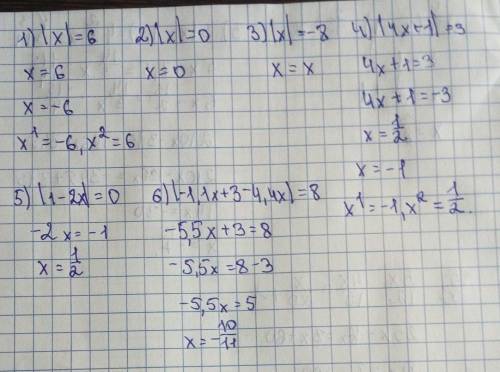 1) |x|=6
x=6
x=-6
x¹=-6, x²=6
2) |x|=0
x=0
3) |x|=-8
x=x
4) |4x+1|=3
4x+1=3
4x+1=-3
x=1/2
x=-1
x¹=-1, x²=1/2.
5) |1-2x|=0
-2x=-1
x=1/2
6) |-1,1x+3-4,4x|=8
-5,5x+3=8
-5,5x=8-3
-5,5x=5
x=-10/11